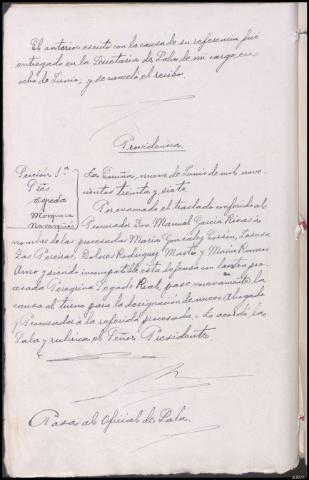 El anterior escrito con la causa de su referencia fué
entregado en la Secretaría de Sala de mi cargo en
ocho de Junio, y se canceló el recibo.
Providencia
Sección 1ª
Sres
Cepeda
Mosquera
Navazquez
La Coruña, nueve de Junio de mil nove-
cientos treinta y siete
Por evacuado el traslado conferido al
Procurador Don Manuel García Rivas á
nombre de las procesadas María González
Las Pereiras, Dolores Rodriguez y María Ramos
Amo y siendo incompatible esta defensa con la otra pro-
cesada Peregrina Segade Rial, pase nuevamente la
causa al turno para la designación de nuevo Abogado
y Procurador á la referida procesada. Lo acordó la
Sala y rubrica el Señor Presidente.
Pasa al Oficial de Sala.